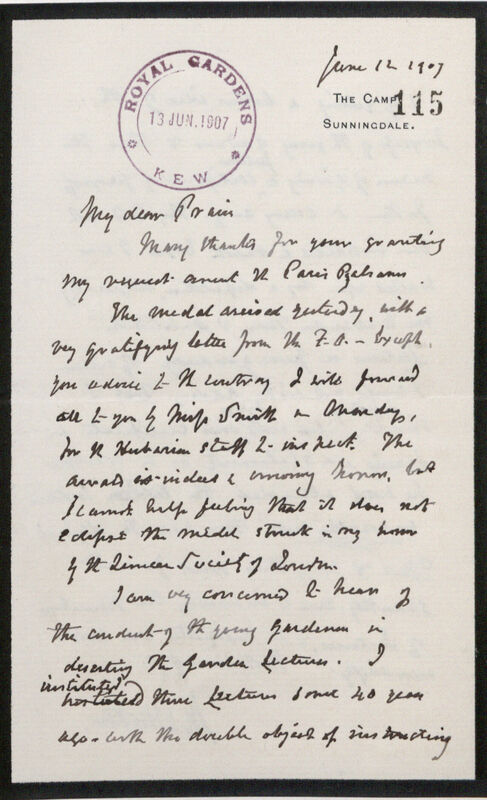 June 12 1907
ROYAL GARDENS
13 JUN. 1907
KEW
115
THE CAMP,
SUNNINGDALE.
My dear Prain
Many thanks for your granting
my request anent the Paris Balsams.
The medal arrived yesterday, with a
very gratifying letter from the F.O. - Except
you advise to the contrary I will forward
all to you by Miss Smith on Monday,
for the Herbarium staff to inspect. The
award is indeed a crowning honor, but
I cannot help feeling that it does not
eclipse the medal struck in my honor
by the Linnean Society of London.
I am very concerned to hear of
the conduct of the young Gardeners in
deserting the Garden Lectures. I
instituted
these Lectures some 40 years
ago - with the double object of instructing